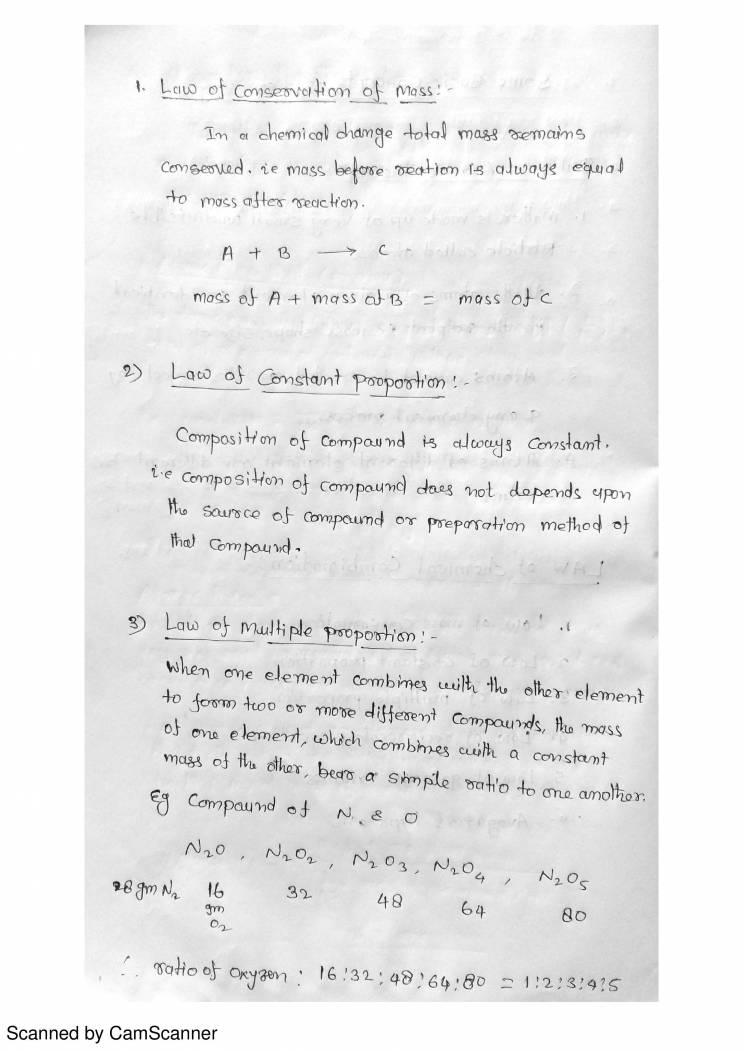 1. Law of Conservation of Mass:-
In a chemical change total mass remains
conserved. ie mass before reation is always equal
to mass after reaction.
A + B → C
mass of A + mass of B = mass of C
2) Law of Constant proportion:-
Composition of compound is always constant.
i.e composition of compound does not depends upon
the source of compound or preparation method of
that compound.
3) Law of multiple proportion:-
When one element combines with the other element
to form two or more different compounds, the mass
of one element, which combines with a constant
mass of the other, bear a simple ratio to one another.
Eg Compound of N & O
N2O, N2O2, N2O3, N2O4, N2O5
28 gm N2 16 32 48 64 80
gm
O2
∴ ratio of oxyzen: 16:32:48:64:80 = 1:2:3:4:5
Scanned by CamScanner